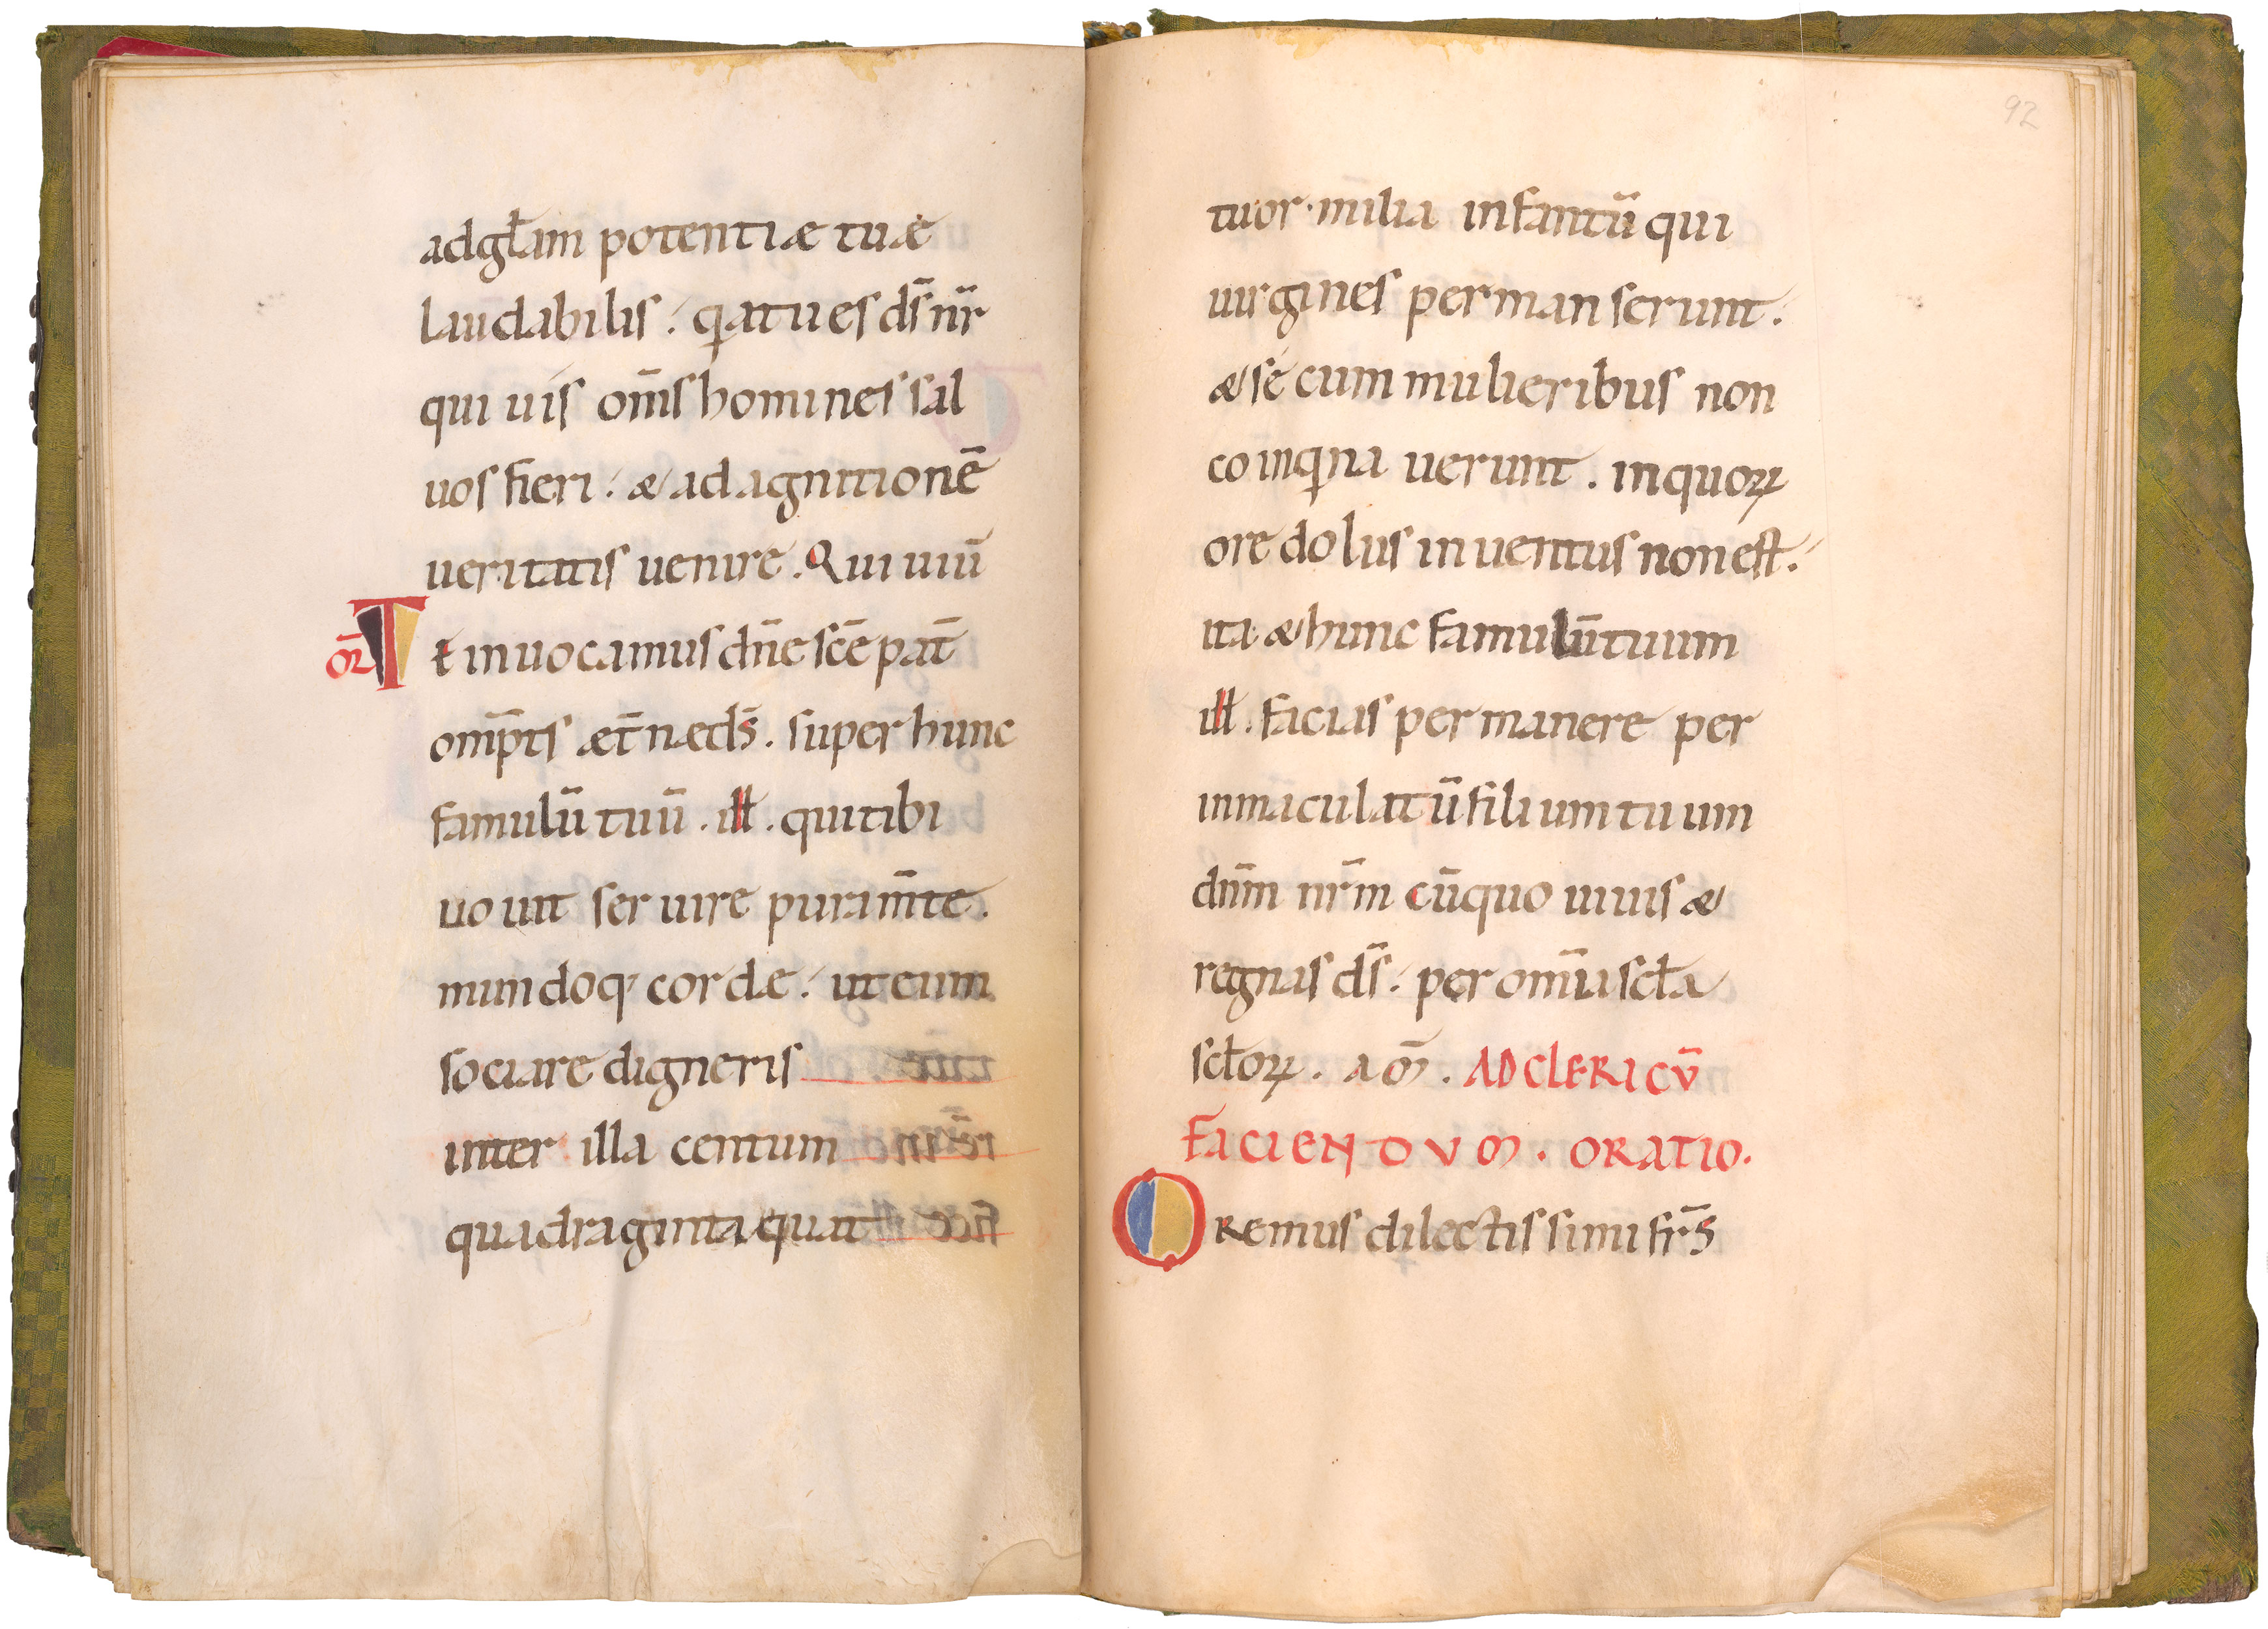 adgłam potentiæ tuæ
laudabilis. qatues ds̄ nr̄
qui uis om̄s homines sal
uos fieri. & ad agnitionē
ueritatis uenire. Qui uiū
or̄ Te inuocamus dn̄e scē pat̄
omp̄ts æt̄næ ds̄. super hunc
famulū tuū. iłł. qui tibi
uouit seruire puram̄te.
mundoq; corde. ut eum
sociare digneris
inter illa centum
quadraginta quat
92
tuor. milia infantū qui
uirgines permanserunt.
& se cum mulieribus non
coinqina uerunt. inquoꝝ
ore dolus inuentus non est.
ita & hunc famulū tuum
iłł. facias permanere per
inmaculatū filium tuum
dn̄m nr̄m cū quo uiuis &
regnas ds̄. per om̄ia scła
scłoꝝ. am̄. AD CLERICŪ
FACIENDUM. ORATIO.
Oremus dilectissimi fr̄s